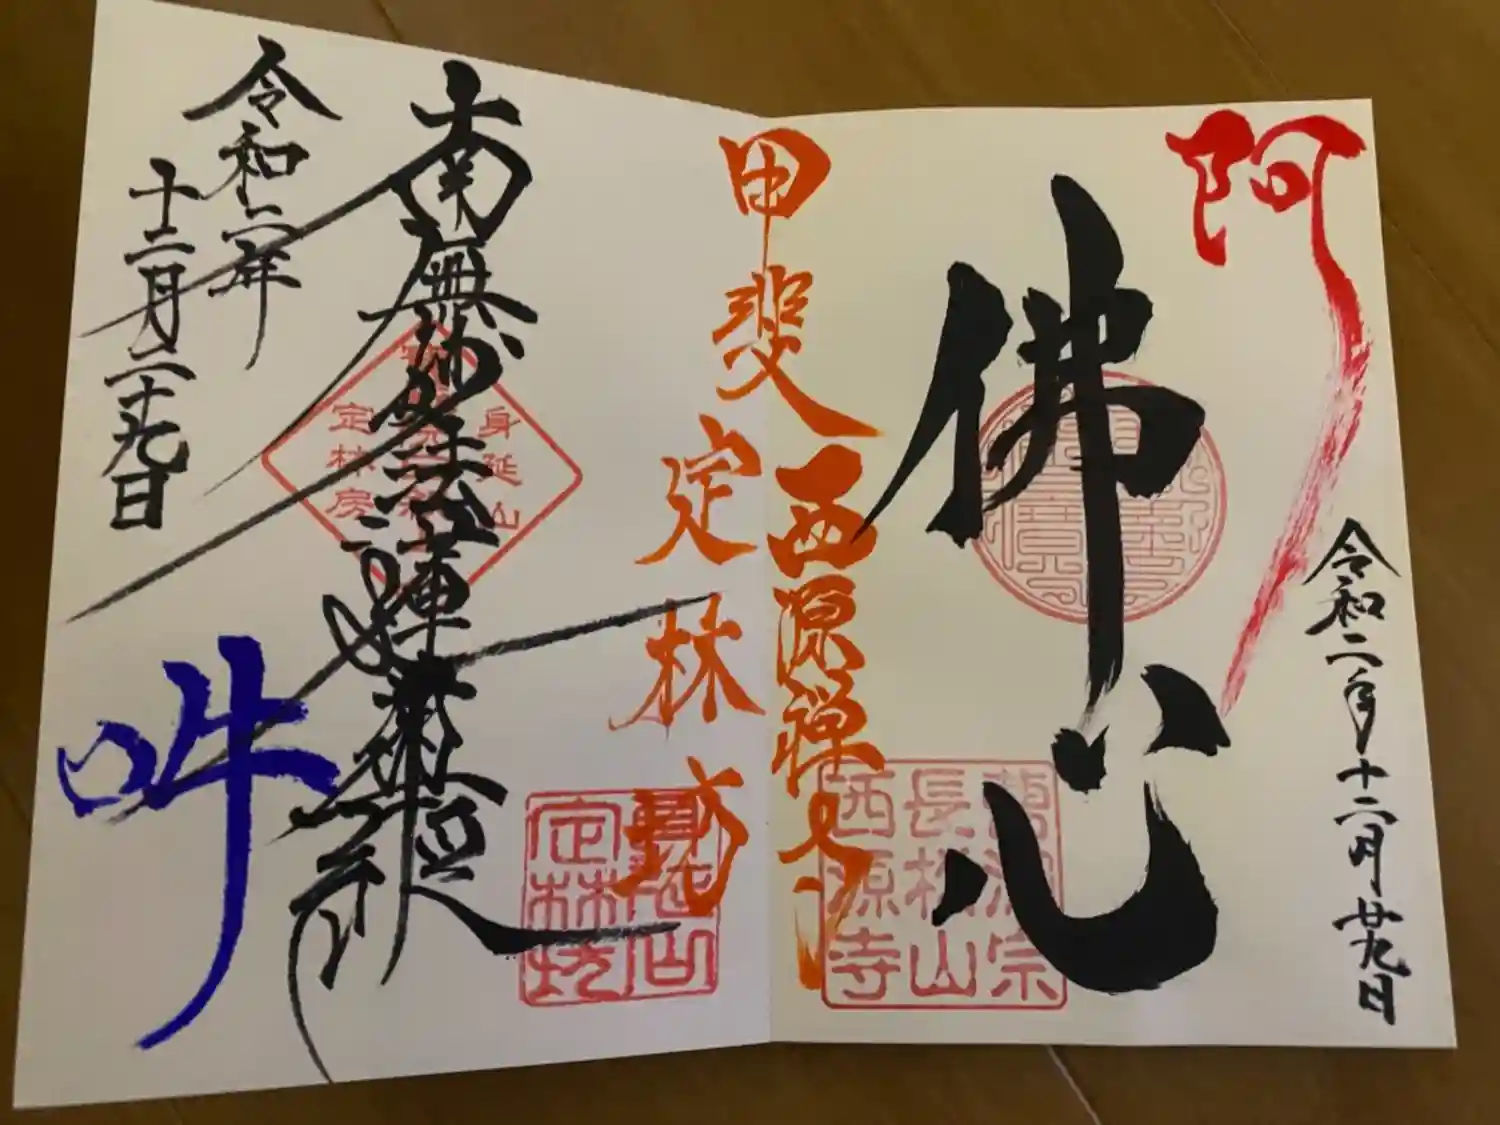 阿
佛心
令和二年十二月廿九日
西源禅寺
萬松宗
長松山
西源寺
甲斐定林坊
南無妙法蓮華経
身延山
定林房
身延山
定林坊
令和二年
十二月二十九日
吽